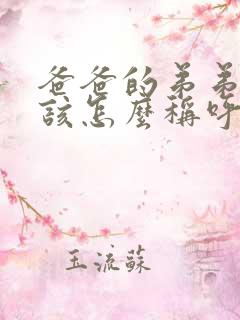 爸爸的弟弟
該怎麼稱呼
玉流蘇